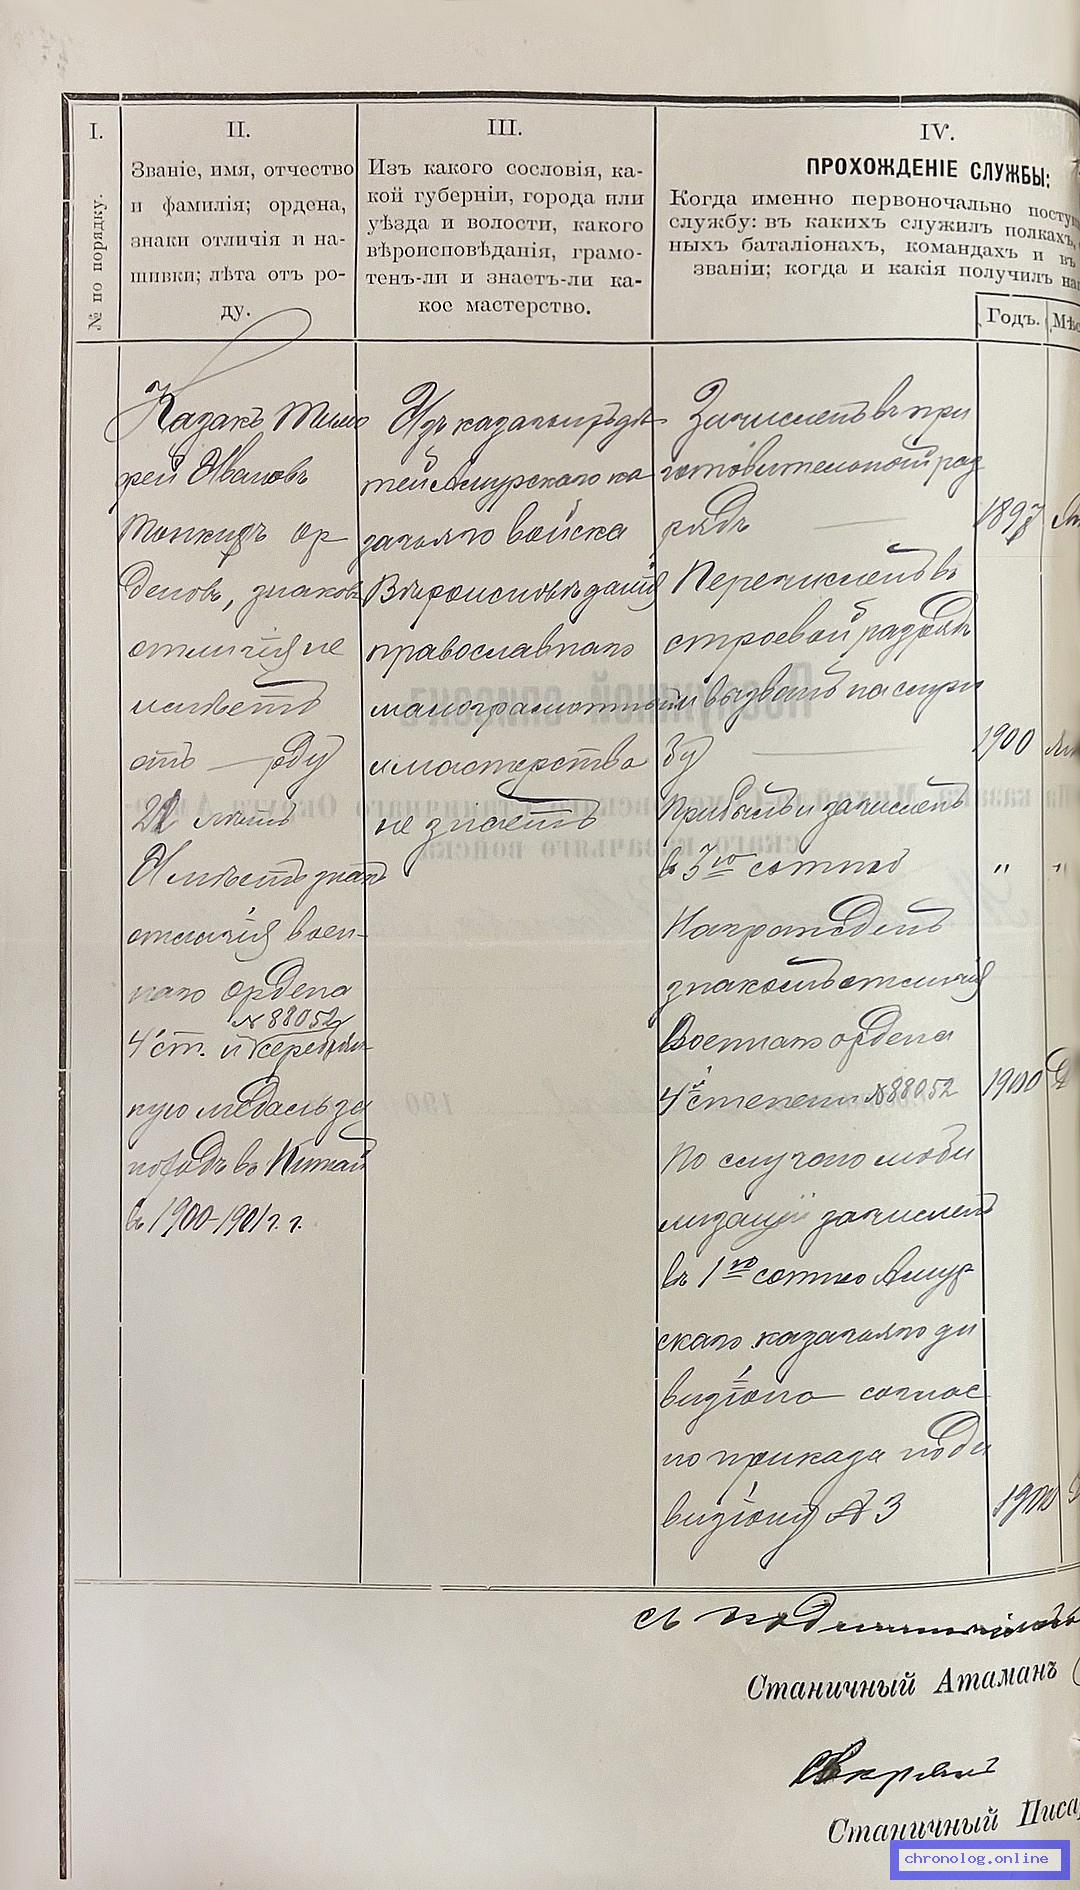 I.
№ по порядку.
II.
Званіе, имя, отчество
и фамилія; ордена,
знаки отличія и на-
шивки; лѣта отъ ро-
ду.
III.
Изъ какого сословія, ка-
кой губерніи, города или
уѣзда и волости, какого
вѣроисповѣданія, грамо-
тенъ-ли и знаетъ-ли ка-
кое мастерство.
IV.
ПРОХОЖДЕНІЕ СЛУЖБЫ:
Когда именно первоночально посту
службу: въ какихъ служилъ полкахъ,
ныхъ баталіонахъ, командахъ и въ
званіи; когда и какія получилъ на
Годъ.
Мѣс
Казакъ Тимо
фей Ивановъ
ор
деновъ, знаковъ
отличія не
имѣетъ
отъ — роду
21 лѣтъ
Имѣетъ знакъ
отличія воен-
наго ордена
№ 88052
4 ст. и серебрян
ную медаль за
походъ въ Китай
въ 1900-1901 г.г.
Изъ казачьихъ дѣ
тей Амурскаго ка
зачьяго войска
Вѣроисповѣданія
православнаго
малограмотный
и мастерства
не знаетъ
Зачисленъ въ при
готовительный раз
рядъ — 1897
Перечисленъ въ
строевой разрядъ
и вызванъ на служ
бу — 1900
Прибылъ и зачисленъ
въ 3ю сотню " "
Награжденъ
знакомъ отличія
Военнаго ордена
4й степени №88052 1900
По случаю моби
лизаціи зачисленъ
въ 1ю сотню Амур
скаго казачьяго ди
визіона соглас
но приказа по ди
визіону № 3 1900
Съ подлиннымъ
Станичный Атаманъ
Свѣрялъ
Станичный Писа
chronolog.online